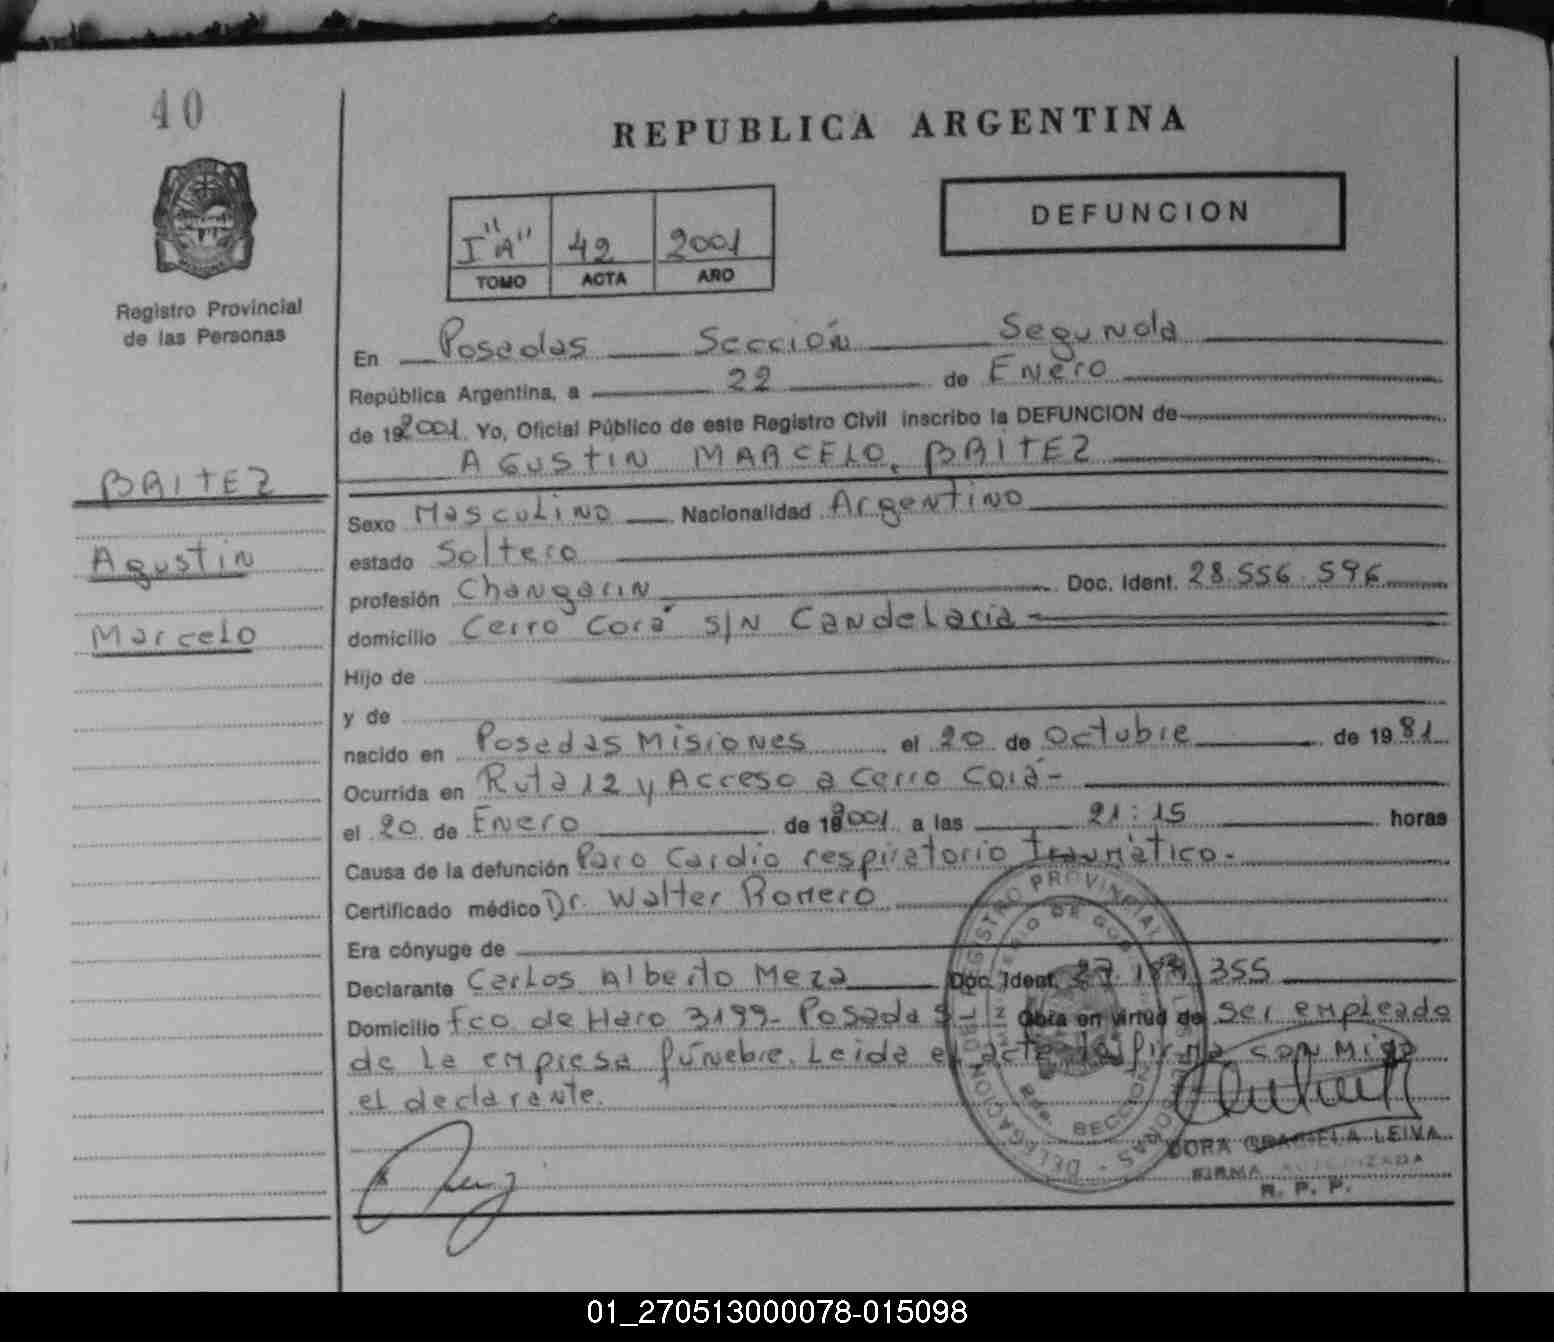 40
REPUBLICA ARGENTINA
DEFUNCION
I "A" 42 2001
TOMO ACTA AÑO
Registro Provincial
de las Personas
En Posadas Sección Segunda
República Argentina, a 22 de Enero
de 192001. Yo, Oficial Público de este Registro Civil inscribo la DEFUNCION de
AGUSTIN MARCELO, BRITEZ
BRITEZ
Agustin
Marcelo
Sexo Masculino Nacionalidad Argentino
estado Soltero
profesión Changarin Doc. Ident. 28.556.596
domicilio Cerro Corá S/N Candelaria
Hijo de
y de
nacido en Posadas Misiones el 20 de Octubre de 1981
Ocurrida en Ruta 12 y Acceso a Cerro Corá-
el 20 de Enero de 192001 a las 21:15 horas
Causa de la defunción Paro Cardio respiratorio traumatico.-
Certificado médico Dr. Walter Romero
Era cónyuge de
Declarante Carlos Alberto Meza Doc. Ident. 355
Domicilio Fco de Haro 3199- Posadas Obra en virtud de Ser empleado
de la empresa fúnebre. Leida el acta la firma conmigo
el declarante.
DELEGACION DEL REGISTRO PROVINCIAL DE LAS PERSONAS
2da. SECCION
DORA GRACIELA LEIVA
FIRMA AUTORIZADA
R. P. P.
01_270513000078-015098